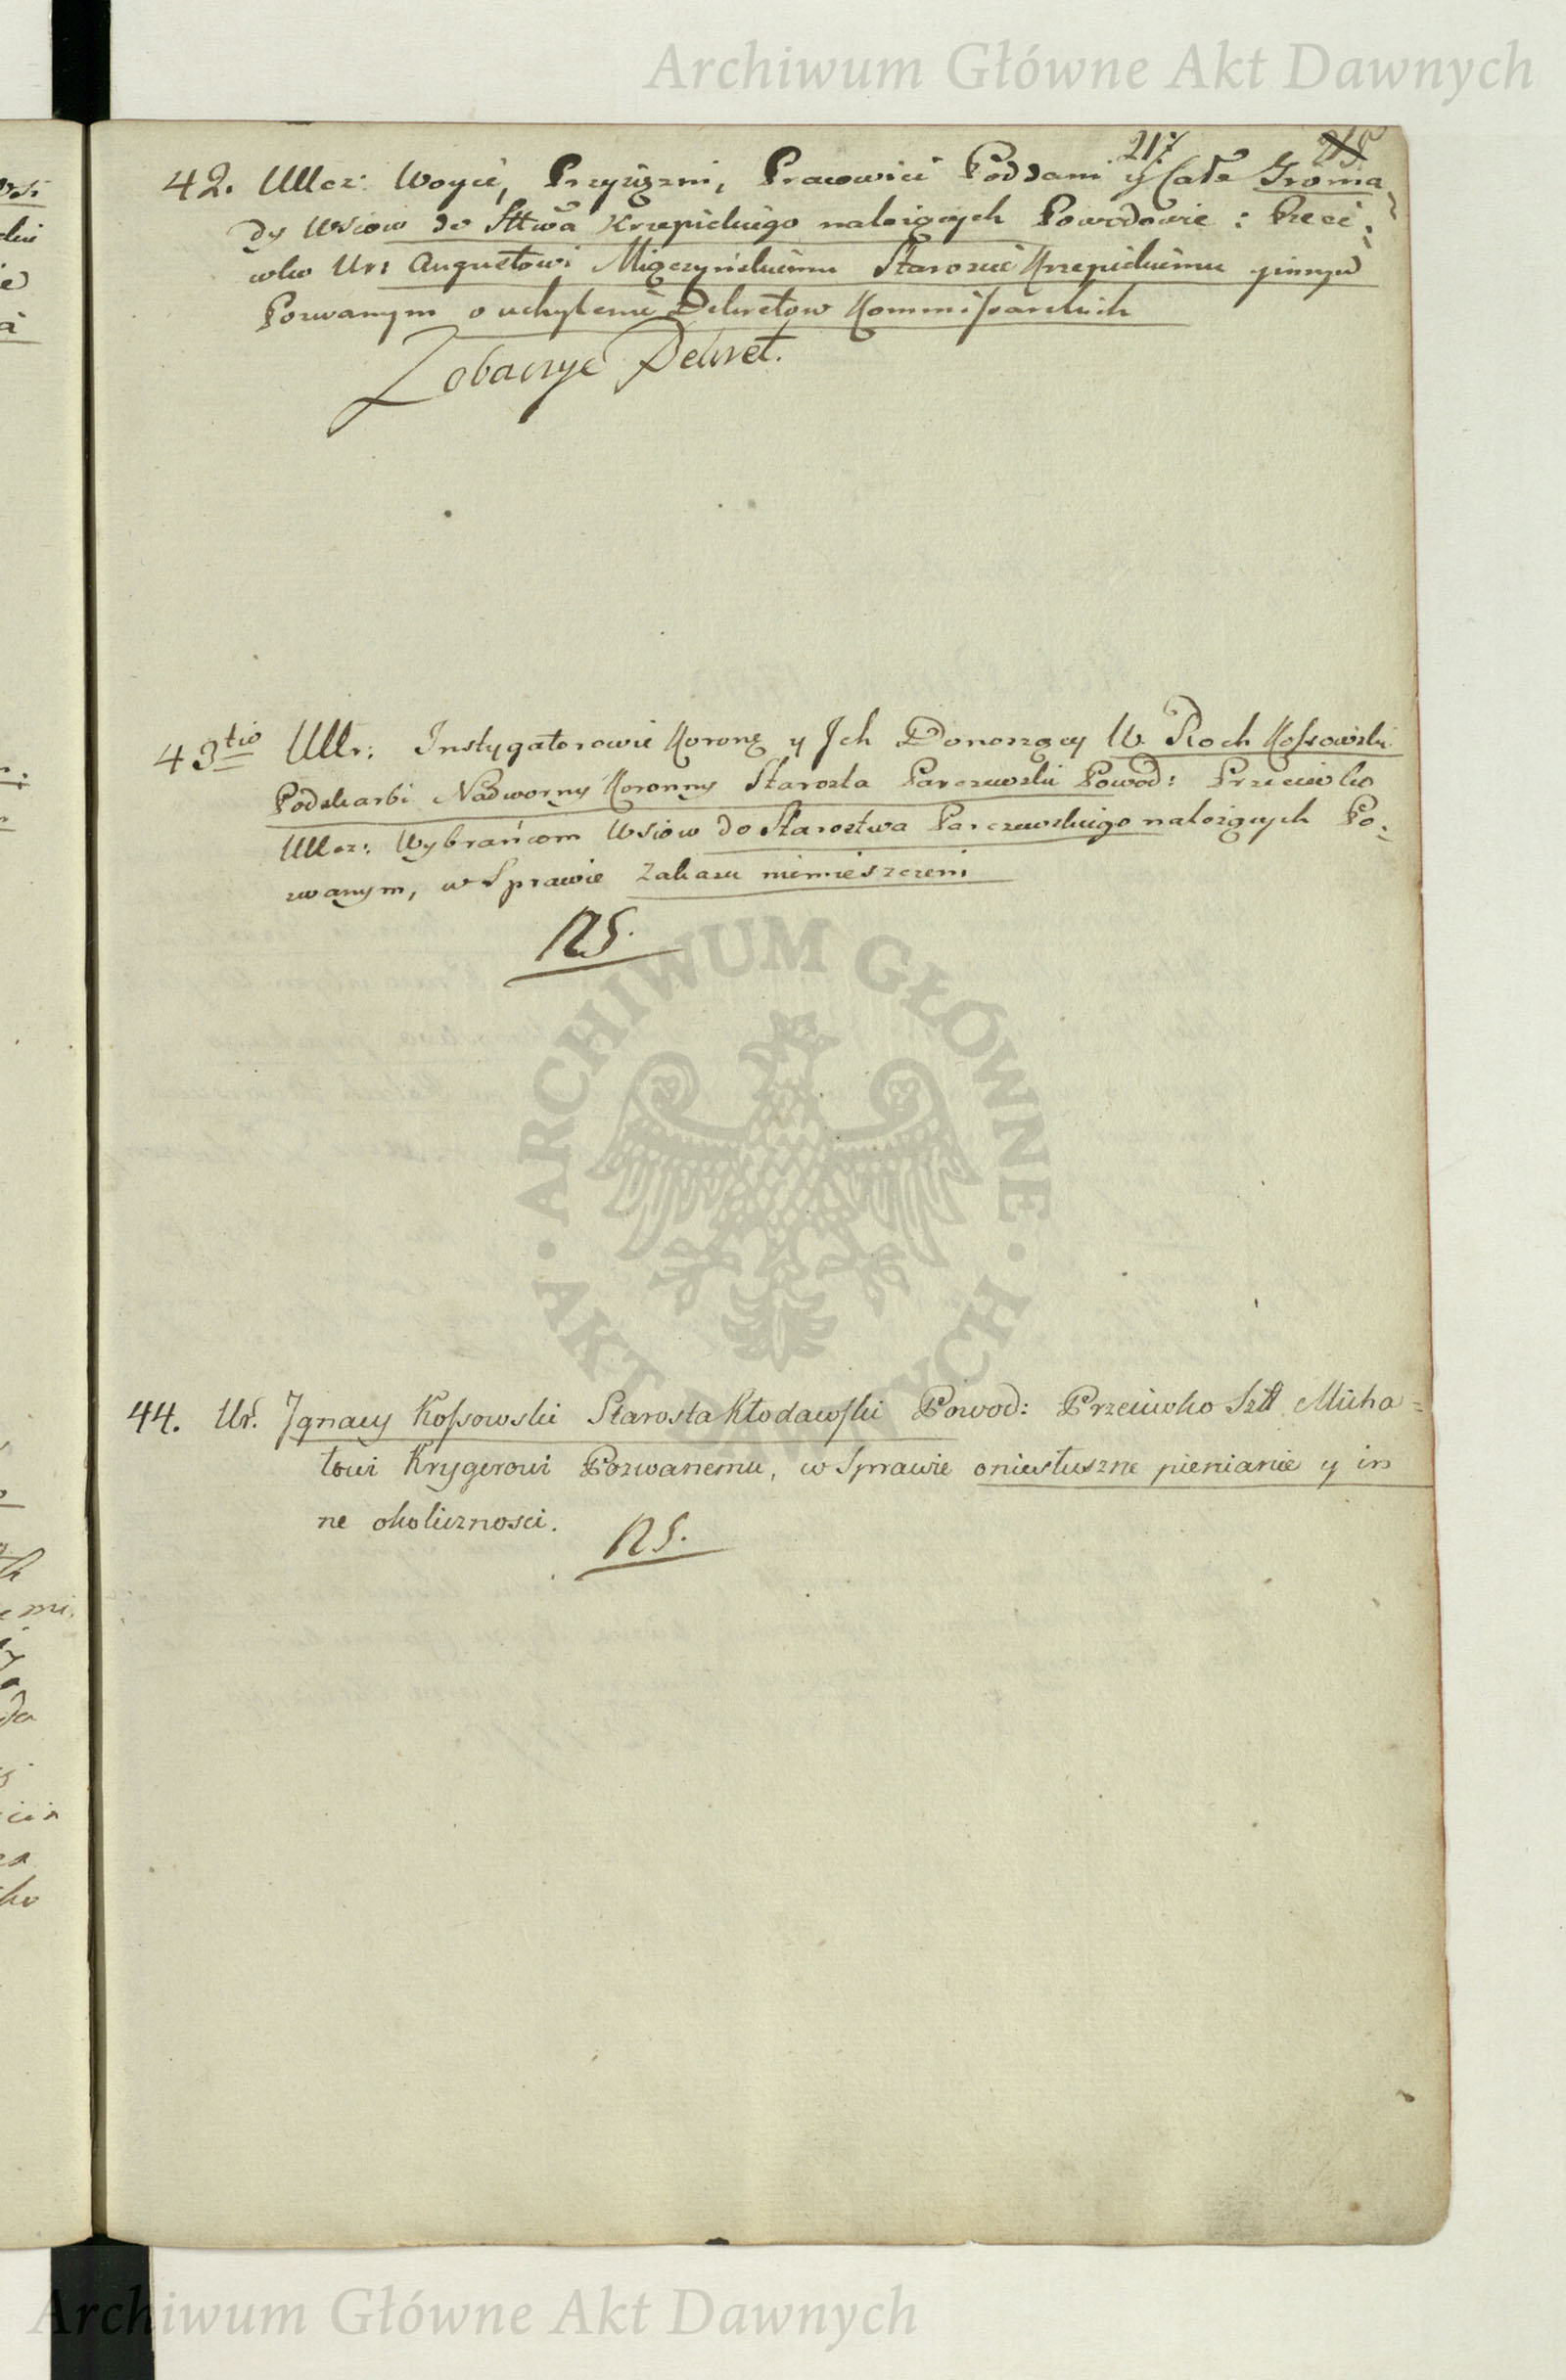 Archiwum Główne Akt Dawnych
217 215
42. Uller: Woyci, Przysiężni, Pracowici Poddani y Cała Groma,
dy Wsiow do Sttwa Krzepickiego należących Powodowie: Przeci,
wko Ur: Augustowi Miączyńskiemu Staroscie Krzepickiemu y innym
Pozwanym o uchylenie Dekretow Kommissarskich
Zobaczyć Dekret.
43tio Ur: Instygatorowie Koronę y Jch Donoszący W. Roch Kossowski
Podskarbi Nadworny Koronny Starosta Parczewski Powod: Przeciwko
Uller: Wybrańcom Wsiow do Starostwa Parczewskiego należących Po,
zwanym, w Sprawie Zakazu niemieszczeni
NS.
ARCHIWUM GŁÓWNE • AKT DAWNYCH •
44. Ur. Jgnacy Kossowski Starosta Kłodawski Powod: Przeciwko Szl Micha=
łowi Krygerowi Pozwanemu, w Sprawie o niesłuszne pienianie y in
ne okoliczności.
NS.
Archiwum Główne Akt Dawnych